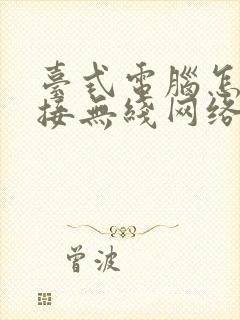 臺式電腦怎
接無綫网络
曾波